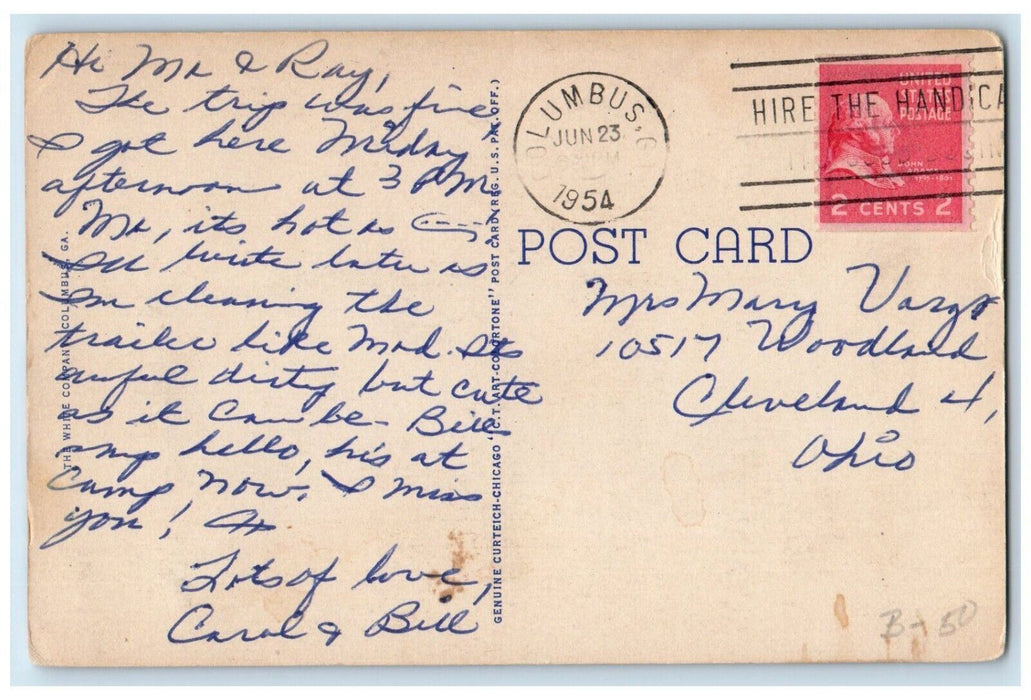 Hi Ma & Ray,
The trip was fine
I got here Friday
afternoon at 3 P.M.
Ma, its hot as
I'll write later as
I'm cleaning the
trailer like Mad. Its
awful dirty but cute
as it can be - Bill
says hello, his at
Camp now. I miss
you!
Lots of love,
Carol & Bill
THE WHITE COMPANY, COLUMBUS, GA.
GENUINE CURTEICH-CHICAGO "C.T. ART-COLORTONE" POST CARD (REG. U.S. PAT. OFF.)
COLUMBUS, GA
JUN 23
PM
1954
HIRE THE HANDICA
UNITED
STATES
POSTAGE
JOHN
2 CENTS 2
POST CARD
Mrs Mary Vargo
10517 Woodland
Cleveland 4,
Ohio
B-50